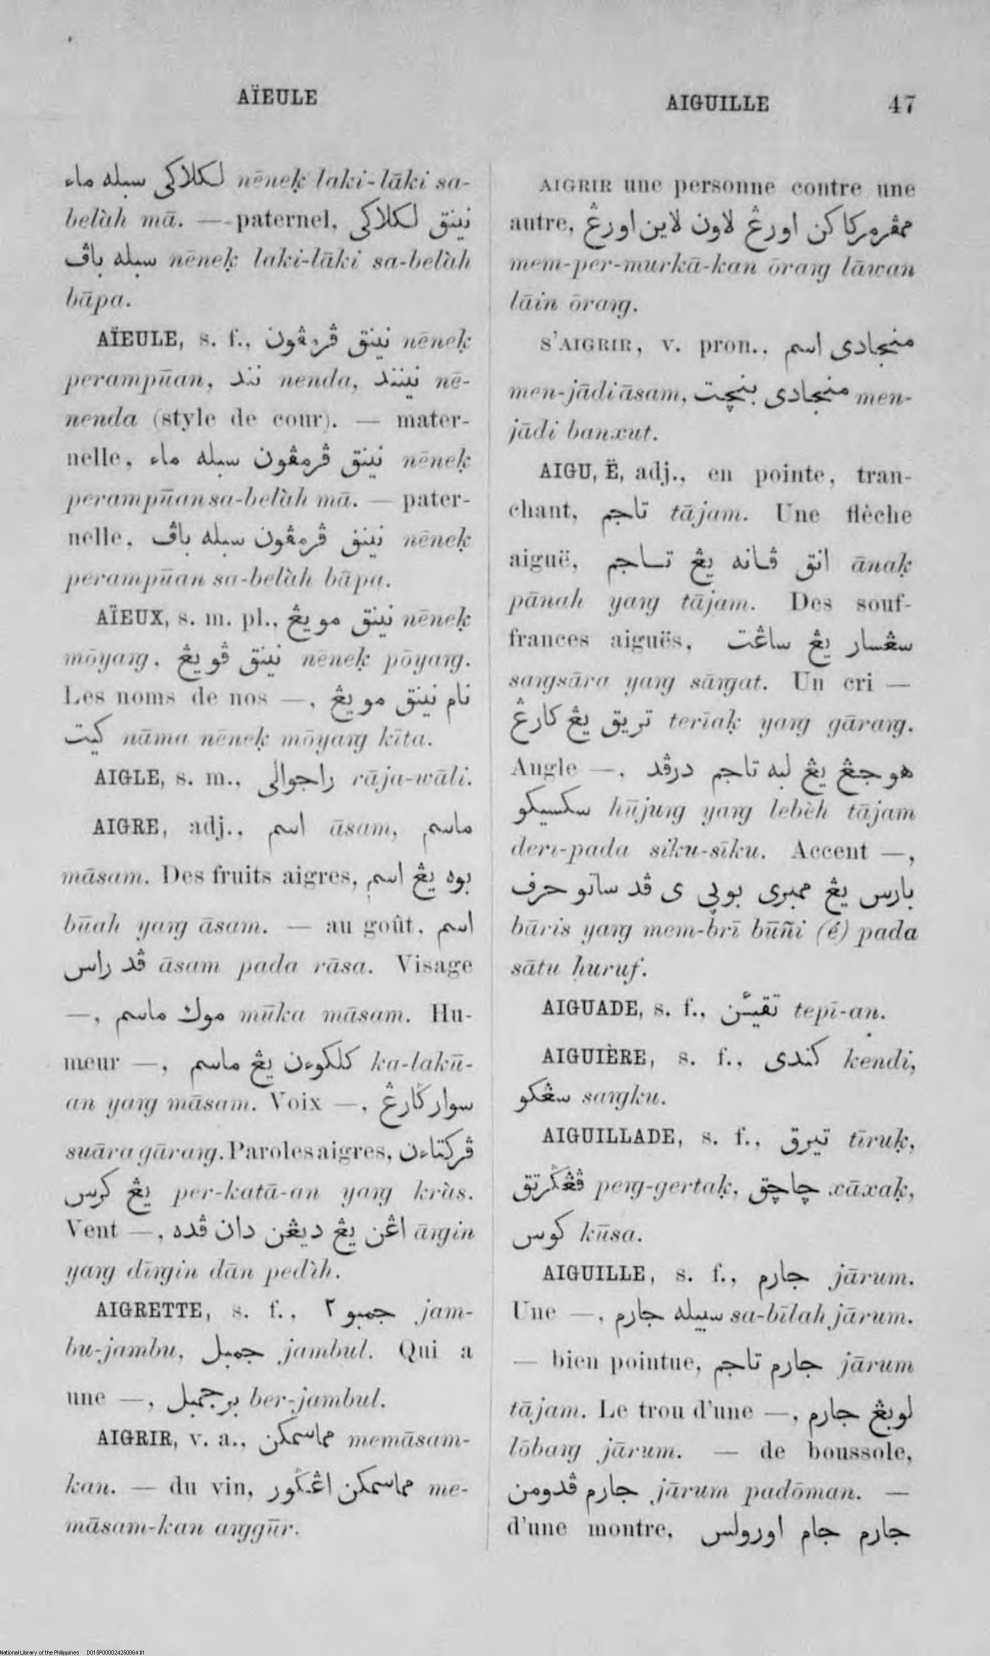 AÏEULE
AIGUILLE 47
لكلاكي سبله ماء nēneḳ laki-lāki sa-
belàh mā. — paternel, نينق لكلاكي
سبله باڤ nēneḳ laki-lāki sa-belàh
bāpa.
AÏEULE, s. f., نينق ڤرمڤون nēneḳ
perampūan, نند nenda, نينند nē-
nenda (style de cour). — mater-
nelle, نينق ڤرمڤون سبله ماء nēneḳ
perampūan sa-belàh mā. — pater-
nelle, نينق ڤرمڤون سبله باڤ nēneḳ
perampūan sa-belàh bāpa.
AÏEUX, s. m. pl., نينق مويڠ nēneḳ
mōyaꞑg, نينق ڤويڠ nēneḳ pōyaꞑg.
Les noms de nos —, نام نينق مويڠ
كيت nāma nēneḳ mōyaꞑg kīta.
AIGLE, s. m., راجوالي rāja-wāli.
AIGRE, adj., اسم āsam, ماسم
māsam. Des fruits aigres, بوه يڠ اسم
būah yaꞑg āsam. — au goût, اسم
ڤد راس āsam pada rāsa. Visage
—, موك ماسم mūka māsam. Hu-
meur —, كلكوءن يڠ ماسم ka-lakū-
an yaꞑg māsam. Voix —, سوار ݢارڠ
suāra gāraꞑg. Paroles aigres, ڤركتاءن
يڠ كرس per-katā-an yaꞑg kràs.
Vent —, اڠن يڠ ديڠن دان ڤده āꞑgin
yaꞑg dīꞑgin dān pedìh.
AIGRETTE, s. f., جمبو ٢ jam-
bu-jambu, جمبل jambul. Qui a
une —, برجمبل ber-jambul.
AIGRIR, v. a., مماسمكن memāsam-
kan. — du vin, مماسمكن اڠݢور me-
māsam-kan aꞑggūr.
AIGRIR une personne contre une
autre, ممڤرمركاكن اورڠ لاون لاين اورڠ
mem-per-murkā-kan ōraꞑg lāwan
lāin ōraꞑg.
S'AIGRIR, v. pron., منجادى اسم
men-jādi āsam, منجادى بنچت men-
jādi banxut.
AIGU, Ë, adj., en pointe, tran-
chant, تاجم tājam. Une flèche
aiguë, انق ڤانه يڠ تاجم ānaḳ
pānah yaꞑg tājam. Des souf-
frances aiguës, سڠسار يڠ ساڠت
saꞑgsāra yaꞑg sāꞑgat. Un cri —
تريق يڠ ݢارڠ terīaḳ yaꞑg gāraꞑg.
Angle —, هوجڠ يڠ لبه تاجم درڤد
سكسيكو hūjuꞑg yaꞑg lebèh tājam
deri-pada siku-sīku. Accent —,
بارس يڠ ممبرى بوڽي ى ڤد ساتو حرف
bāris yaꞑg mem-brī būñi (é) pada
sātu ḥuruf.
AIGUADE, s. f., تڤيئن tepī-an.
AIGUIÈRE, s. f., كندى kendi,
سڠكو saꞑgku.
AIGUILLADE, s. f., تيرق tīruḳ,
ڤڠݢرتق peꞑg-gertaḳ, چاچق xāxaḳ,
كوس kūsa.
AIGUILLE, s. f., جارم jārum.
Une —, سبيله جارم sa-bīlah jārum.
— bien pointue, جارم تاجم jārum
tājam. Le trou d'une —, لوبڠ جارم
lōbaꞑg jārum. — de boussole,
جارم ڤدومن jārum padōman. —
d'une montre, جارم جام اورولس
National Library of the Philippines